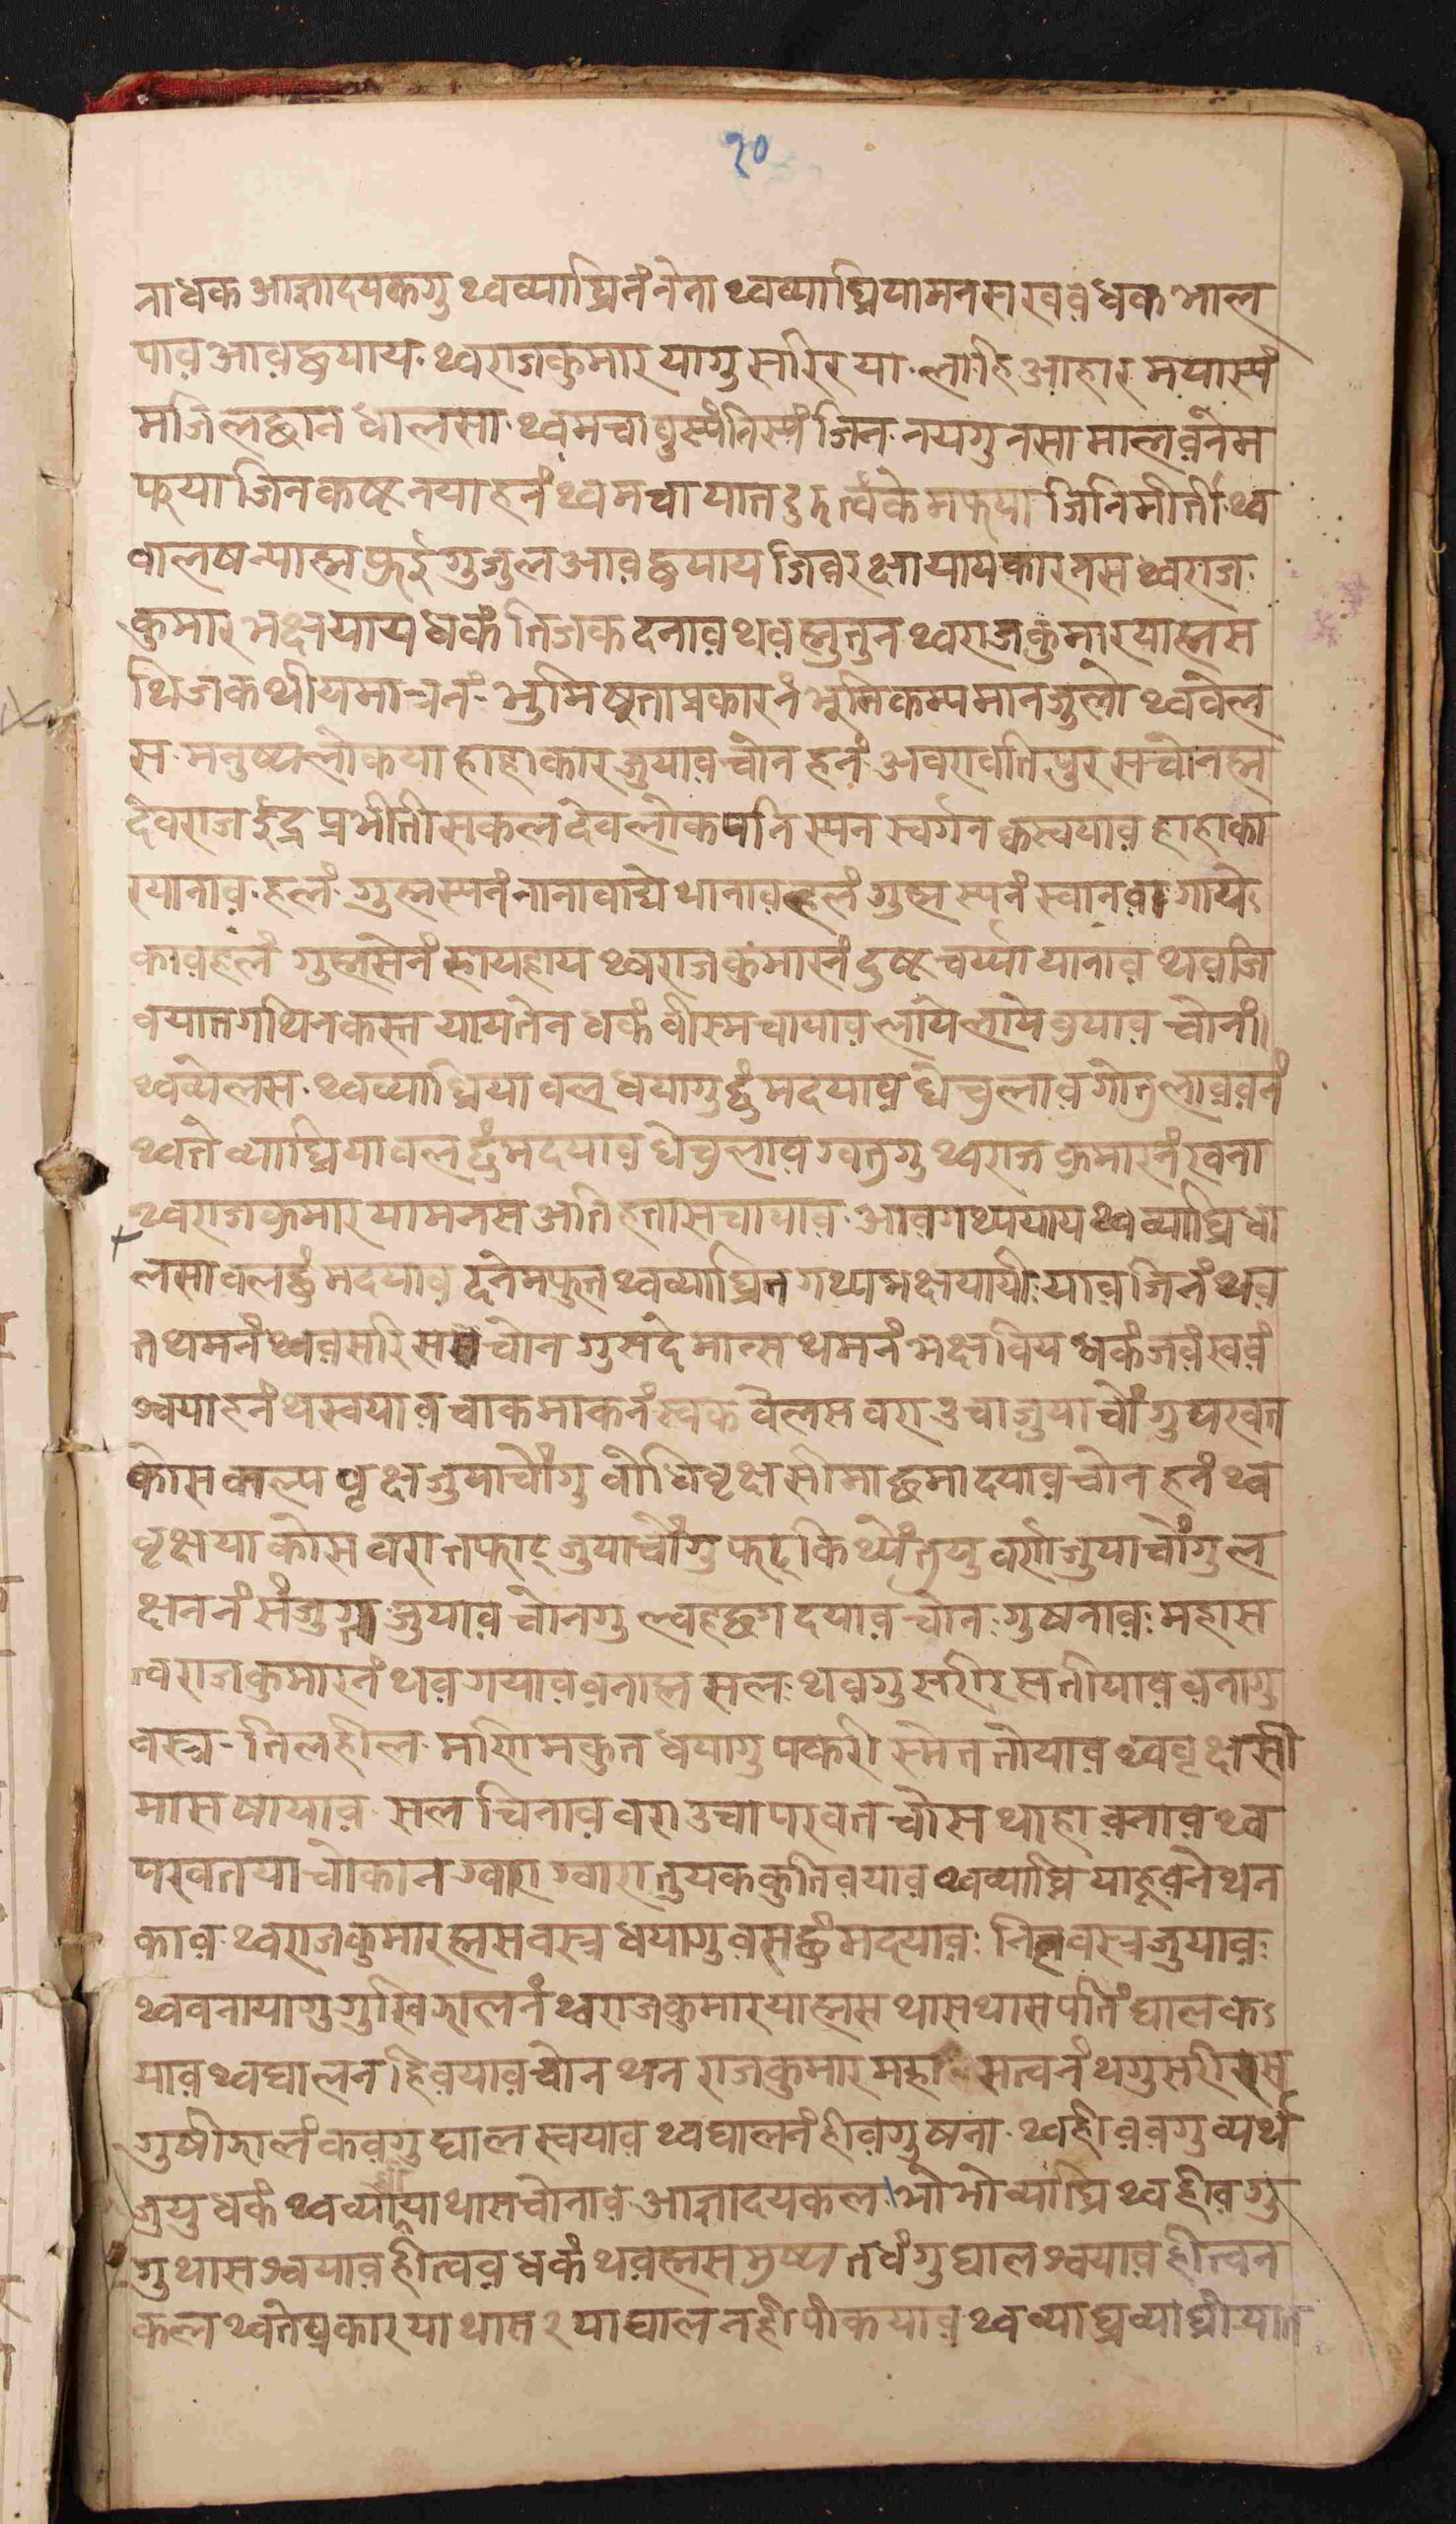 २०
नाधक आज्ञादयकगु थ्वव्याघ्रिनं नेना थ्वव्याघ्रियामनस खव़धक भाल
पाव़ आव़छयाय थ्वराजकुमार यागु सरिर या लाहि आहार मयास्यं
मजिलछान धालसा थ्वमचा वुस्यंनिस्यं जिन नयगुनसा मालव़नेम
फुया जिनकष्ट नयाहनं थ्वमचायात दुरुत्वंके मफया जिनिमीर्ती थ्व
वालषन्याह्म फुईगुजुल आव़छयाय जिव़रक्षायायकारनस थ्वराज
कुमार भक्षयाय धकं तिजक दनाव़ थव़ह्मुतुन थ्वराजकुमारयाह्मस
थिजक थीयमात्रनं भुमिषुताप्रकारनं भूमिकम्पमानजुलो थ्ववेल
स मनुष्यलोकया हाहाकारजुयाव़ चोन हनं अवरावतिपुरसचोनह्म
देवराज ईद्र प्रभीर्ती सकल देवलोकपनिस्यन स्वर्गन कस्वयाव़ हाहाका
रयानाव़ हलं गुह्मस्यनं नानावाद्ये थानाव़हलं गुह्मस्यनं स्वानव़ा गाये
काव़हलं गुह्मसेनं हायहाय थ्वराजकुंमारनं दुष्ट चर्य्या यानाव़ थव़जि
वयात गथिनकस्त यायतेन धकं वीस्मचायाव़ लायेलाये वुयाव़ चोनं॥
थ्वव्येलस थ्वव्याघ्रिया वल धयागु छुं मदयाव़ घेचुलाव़ गोतुलाव़व़नं
थ्वते व्याघ्रियावल छुंमदयाव़ घेचुलाव़ ग्वतुगु थ्वराजकुमारनं खना
थ्वराजकुमार यामनस अति हतासचायाव़ आव़गथ्ययाय थ्वव्याघ्रिधा
लसा वलछुं मदयाव़ दनेमफुत थ्वव्याघ्रित गथ्यभक्षयायी याव़ जिनं थव़
तथमनं थ्वव़सरिसस चोनगु सदे मान्स थमनं भक्ष विय धकं जव़ंखव़ं
स्वयाहनं थस्वयाव़ चाकमाकनं स्वक वेलस वरा उचाजुयाचोंगु परवत
कोस कल्पवृक्षजुयाचोंगु वोधिवृक्ष सीमाछमादयाव़चोन हनं थ्व
वृक्षया कोस वरातफाट् जुयाचोंगु फट्किथ्यें तुयु वर्सा जुयाचोंगु ल
क्षननं संजुग्त जुयाव़ चोनगु ल्वहछग दयाव़ चोनःगुषनाव़ महास
त्व राजकुमारनं थव़गयाव़व़नाह्म सलः थव़गु सरीरस तीयाव़व़नागु
वस्त्र-तिलहील मसिमकुत धयागु पकरी स्मेत तोयाव़ थ्ववृक्ष सी
मास षायाव़ सल चिनाव़ वरा उचा परवत चोस थाहा व़नाव़ थ्व
परवतया चोकान ग्वारा ग्वारा तुयक कुतिव़याव़ थ्वव्याघ्रि याह्नव़ने थन
काव़ थ्वराजकुमारह्मस वस्त्र धयागु व़सछुं मदयाव़ः निलवस्त्र जुयाव़ः
थ्ववनायागु गुसिझालनं थ्वराजकुमारयाह्मस थासथास पतिं घालक
याव़ थ्वघालन हिव़याव़चोन थन राजकुमार महा सत्वनं थगु सरीरस
गुषीझालंकव़गु घाल स्वयाव़ थ्वघालनं हीव़गु षना थ्वहीव़व़गु व्यर्थ
जुयु धकं थ्वव्याघ्रीया थासचोनाव़ आज्ञादयकल भोभो व्याघ्रि थ्वहीव़गु
गुथासस्वयाव़ हीत्वव़ धकं थव़ह्मस मुष्य तधंगु घालस्वयाव़ हीत्वन
कल थ्वतेप्रकारया थास२ या घालन ही पीकयाव़ थ्वव्याघ्रव्याघ्रीयात